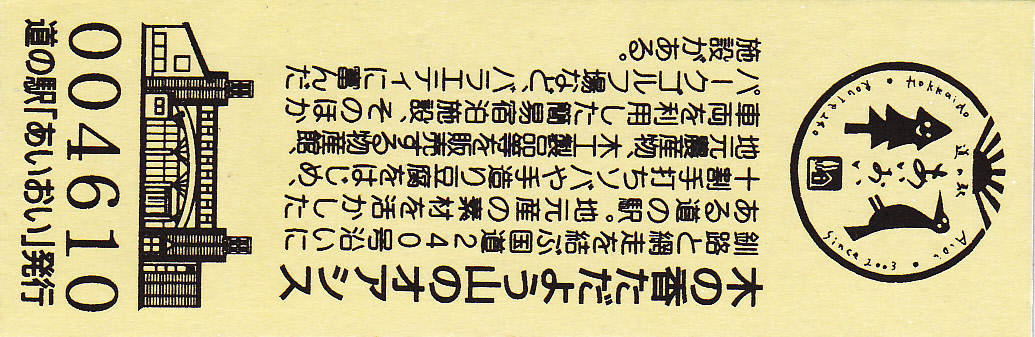 木の香ただよう山のオアシス
釧路と網走を結ぶ国道240号沿いに
ある道の駅。地元産の素材を活かした
十割手打ちソバや手造り豆腐をはじめ、
地元農産物、木工製品等を販売する物産館、
車両を利用した簡易宿泊施設、そのほか
パークゴルフ場など、バラエティに富んだ
施設がある。
道の駅
あいおい
Hokkaido
Aioi
Since 2003
004610
道の駅「あいおい」発行